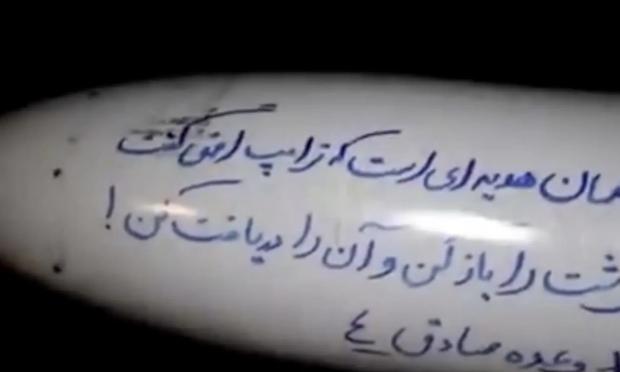 همان هدیه ای است که ترامپ احمق گفت
را باز کن و آن را دریافت کن !
وعده صادق ۴